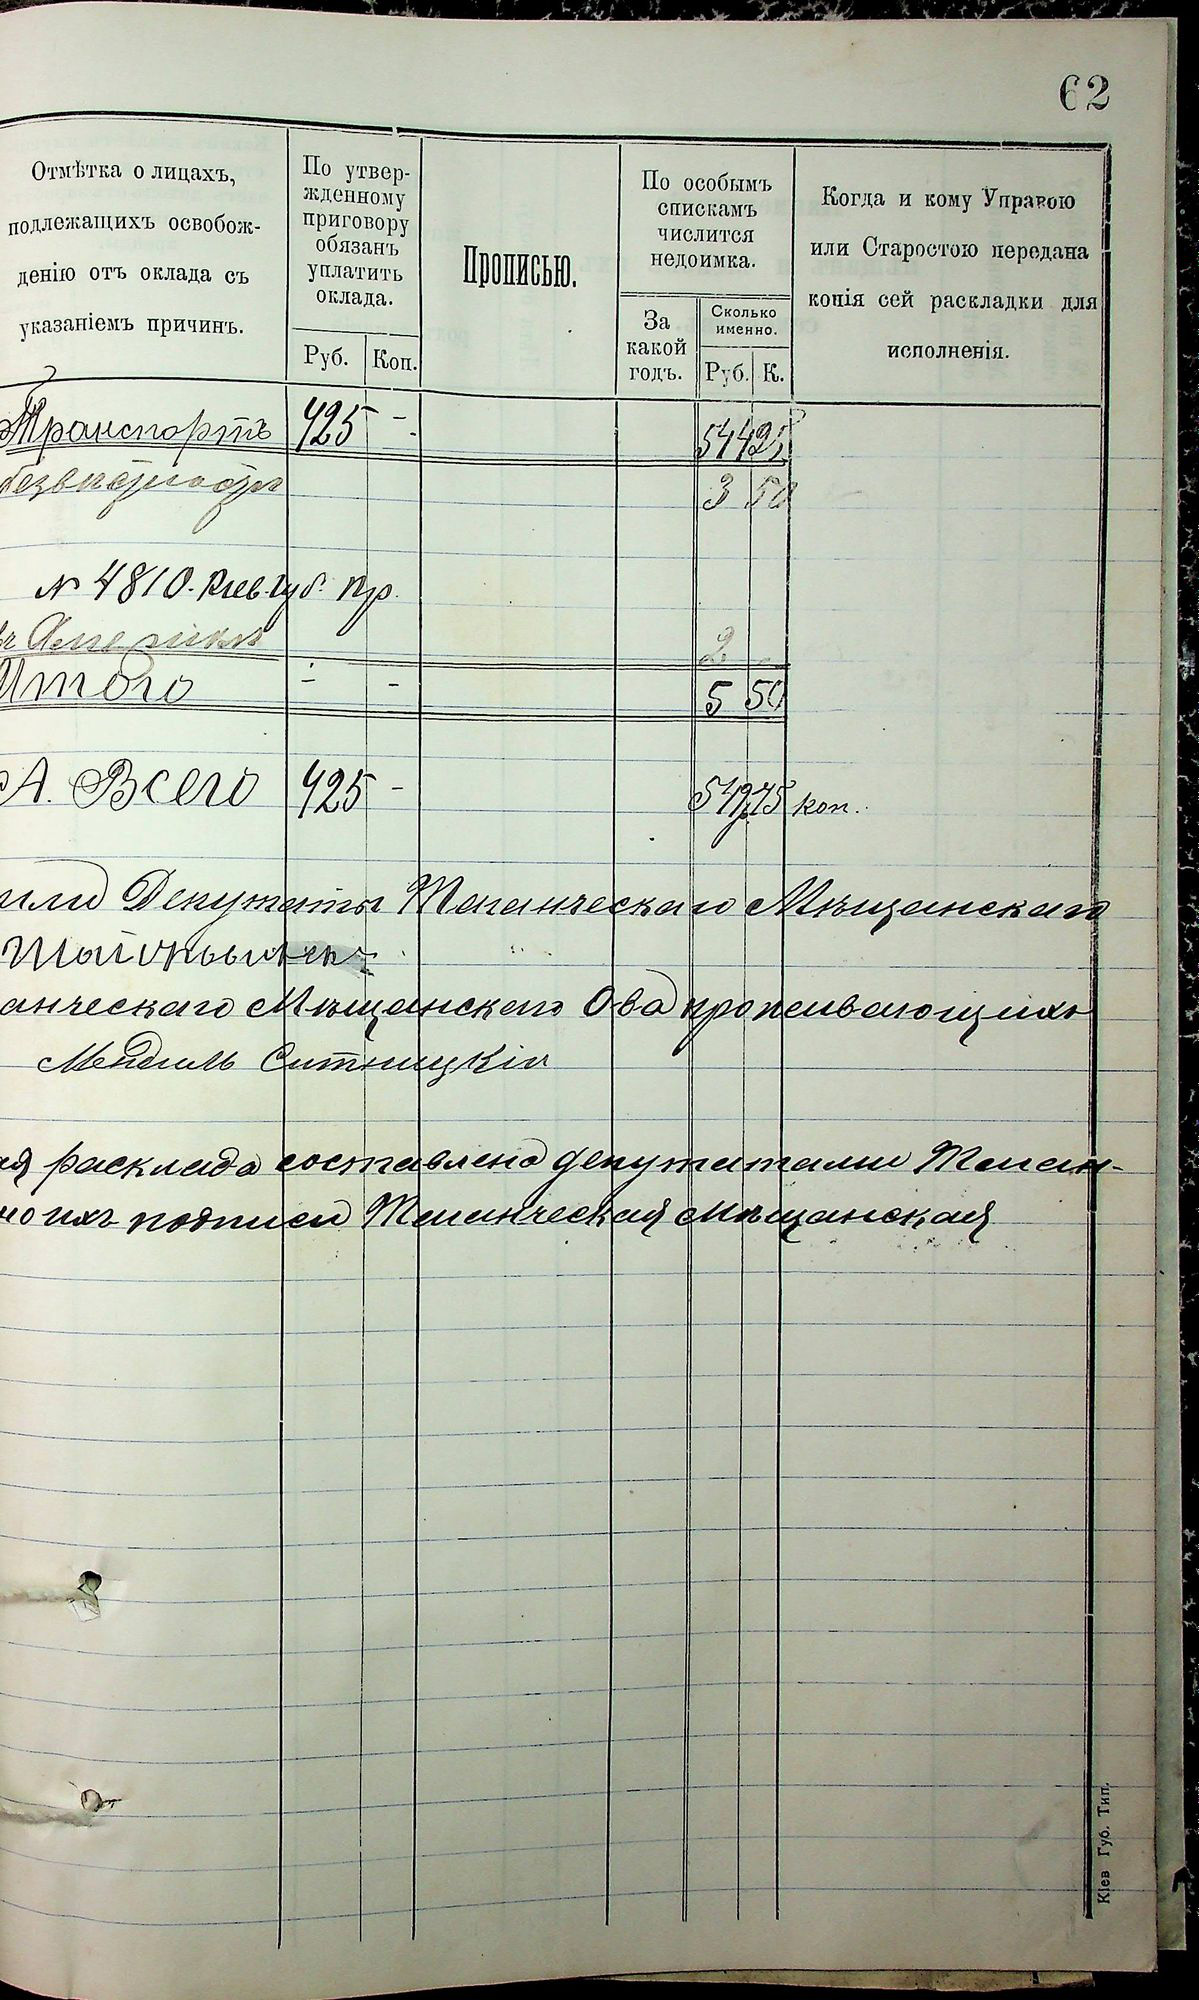 62
Отмѣтка о лицахъ,
подлежащихъ освобож-
денію отъ оклада съ
указаніемъ причинъ.
По утвер-
жденному
приговору
обязанъ
уплатить
оклада.
Руб. Коп.
Прописью.
По особымъ
спискамъ
числится
недоимка.
За
какой
годъ.
Сколько
именно.
Руб. К.
Когда и кому Управою
или Старостою передана
копія сей раскладки для
исполненія.
Транспортъ 425 - 544 25
3 50
№ 4810. Кіев. Губ. Пр.
въ Америкѣ 2 -
Итого - - 5 50
А. Всего 425 - 549 75 коп.
или Депутаты Таганческаго Мѣщанскаго
анческаго Мѣщанскаго Ова проживающихъ
Мендель Ситницкій
ая раскладка составлена депутатами Таган-
но ихъ подписи Таганческая Мѣщанская
Кіев Губ. Тип.